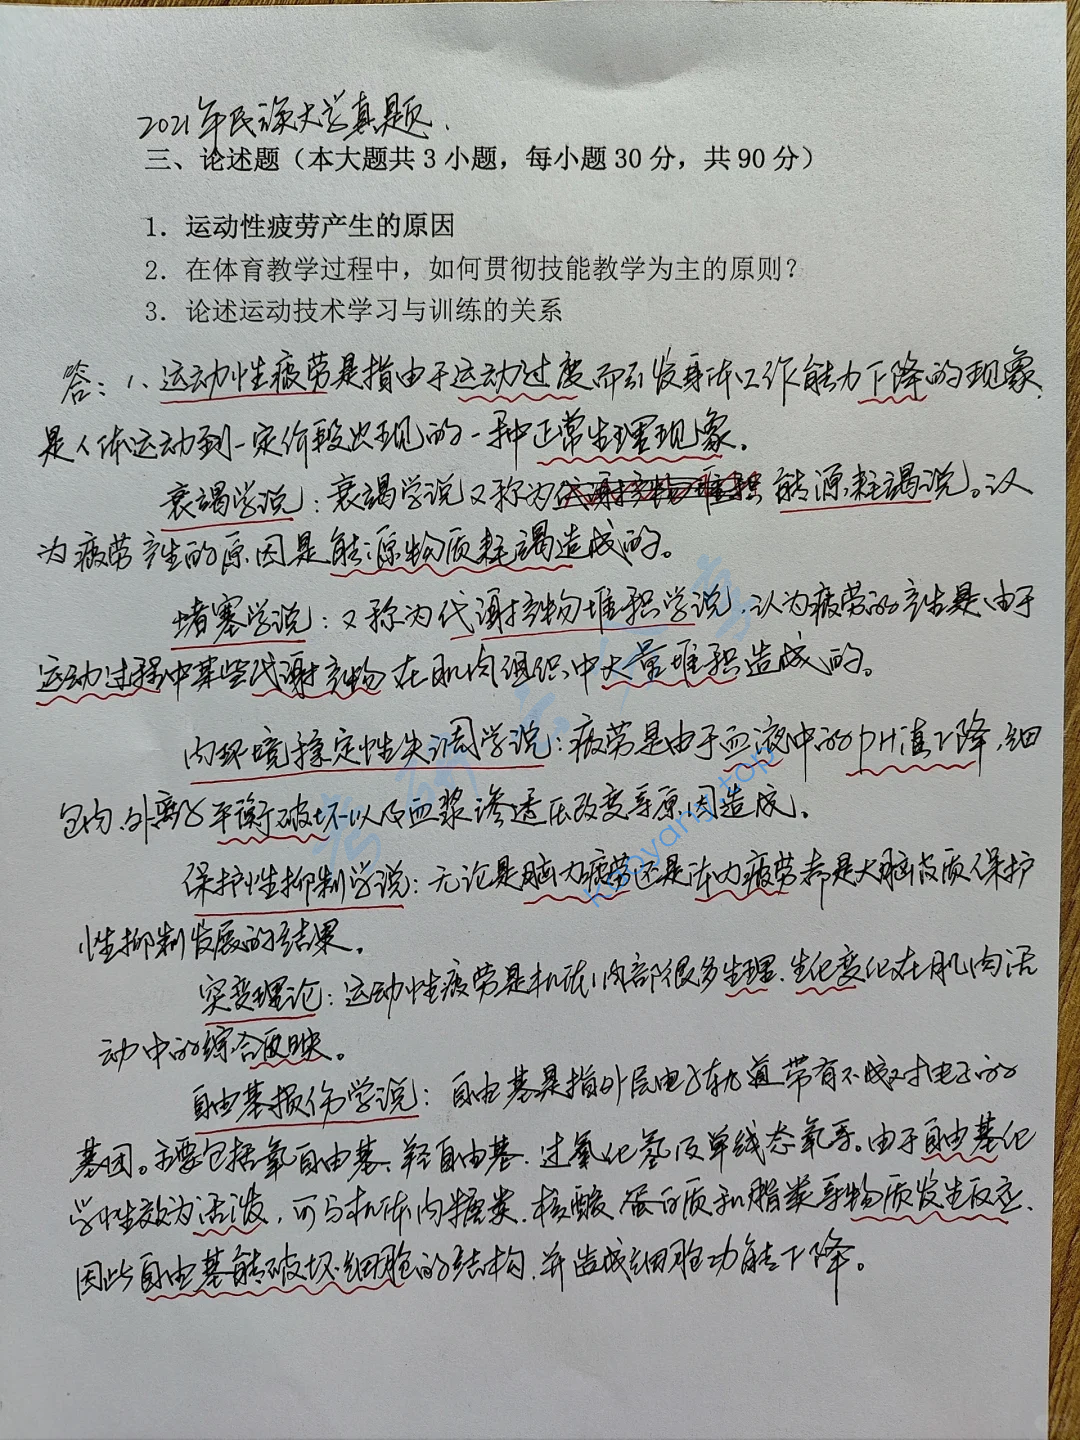 2021年民族大学真题.
三、论述题（本大题共3小题，每小题30分，共90分）
1. 运动性疲劳产生的原因
2. 在体育教学过程中，如何贯彻技能教学为主的原则？
3. 论述运动技术学习与训练的关系
答：1、运动性疲劳是指由于运动过度而引发身体工作能力下降的现象,
是人体运动到一定阶段出现的一种正常生理现象。
衰竭学说：衰竭学说又称为代谢产物堆积能源耗竭说。认
为疲劳产生的原因是能源物质耗竭造成的。
堵塞学说：又称为代谢产物堆积学说，认为疲劳的产生是由于
运动过程中某些代谢产物在肌肉组织中大量堆积造成的。
内环境稳定性失调学说：疲劳是由于血液中的PH值下降，细
包内、外离子平衡破坏以及血浆渗透压改变等原因造成。
保护性抑制学说：无论是脑力疲劳还是体力疲劳都是大脑皮质保护
性抑制发展的结果。
突变理论：运动性疲劳是机体内部很多生理、生化变化在肌肉活
动中的综合反映。
自由基损伤学说：自由基是指外层电子轨道带有不成对电子的
基团。主要包括氧自由基、羟自由基、过氧化氢及单线态氧等。由于自由基化
学性较为活泼，可与机体内糖类、核酸、蛋白质和脂类等物质发生反应，
因此自由基能破坏细胞的结构，并造成细胞功能下降。
kaoyany.top